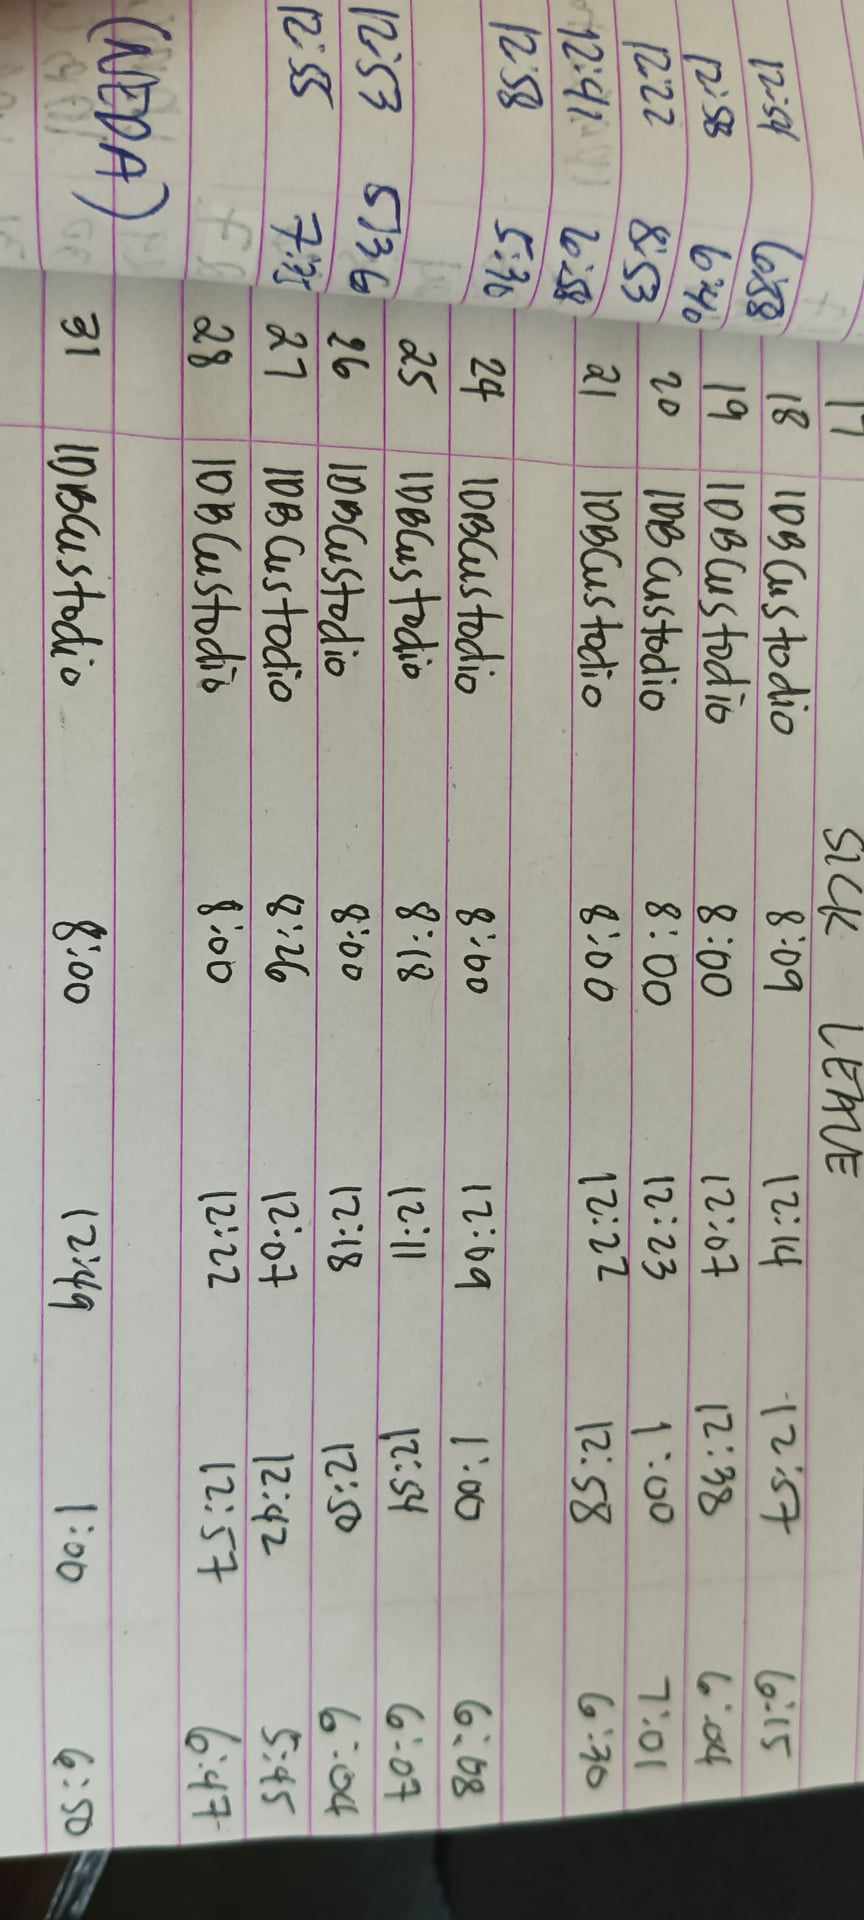 12:54 6:58
12:58 6:40
12:22 8:53
12:41 6:58
12:58 5:36
12:53 5:36
12:55 7:35
(NEDA)
17 SICK LEAVE
18 IDBCustodio 8:09 12:14 12:57 6:15
19 IDBCustodio 8:00 12:07 12:38 6:04
20 IDBCustodio 8:00 12:23 1:00 7:01
21 IDBCustodio 8:00 12:22 12:58 6:30
24 IDBCustodio 8:00 12:09 1:00 6:08
25 IDBCustodio 8:18 12:11 12:54 6:07
26 IDBCustodio 8:00 12:18 12:50 6:04
27 IDBCustodio 8:26 12:07 12:42 5:45
28 IDBCustodio 8:00 12:22 12:57 6:47
31 IDBCustodio 8:00 12:49 1:00 6:50